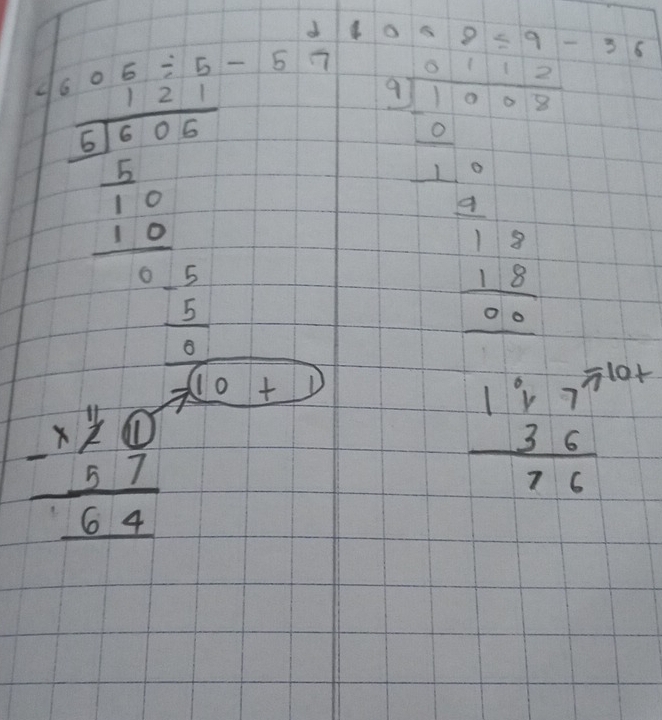 c 605 ÷ 5 - 57
121
5 605
5
10
10
05
5
0
10 + 1
11
× 2 1
- 57
64
d 1008 ÷ 9 - 36
0112
9 1008
0
10
9
18
18
00
10+
1
36
76